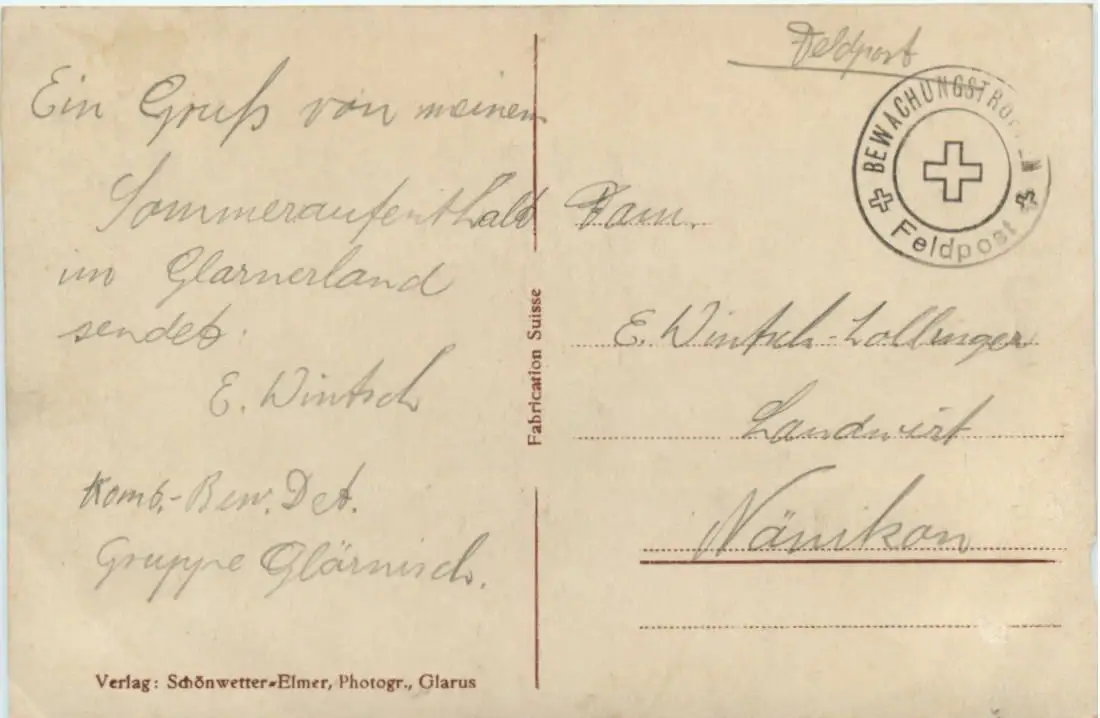 Feldpost
BEWACHUNGSTRUPPEN
Feldpost
Ein Gruß von meinem
Sommeraufenthalt
im Glarnerland
sendet
E. Wintsch
Komb.-Bew. Det.
Gruppe Glärnisch.
Verlag: Schönwetter-Elmer, Photogr., Glarus
Fabrication Suisse
Fam.
E. Wintsch-Bollinger
Landwirt
Nänikon